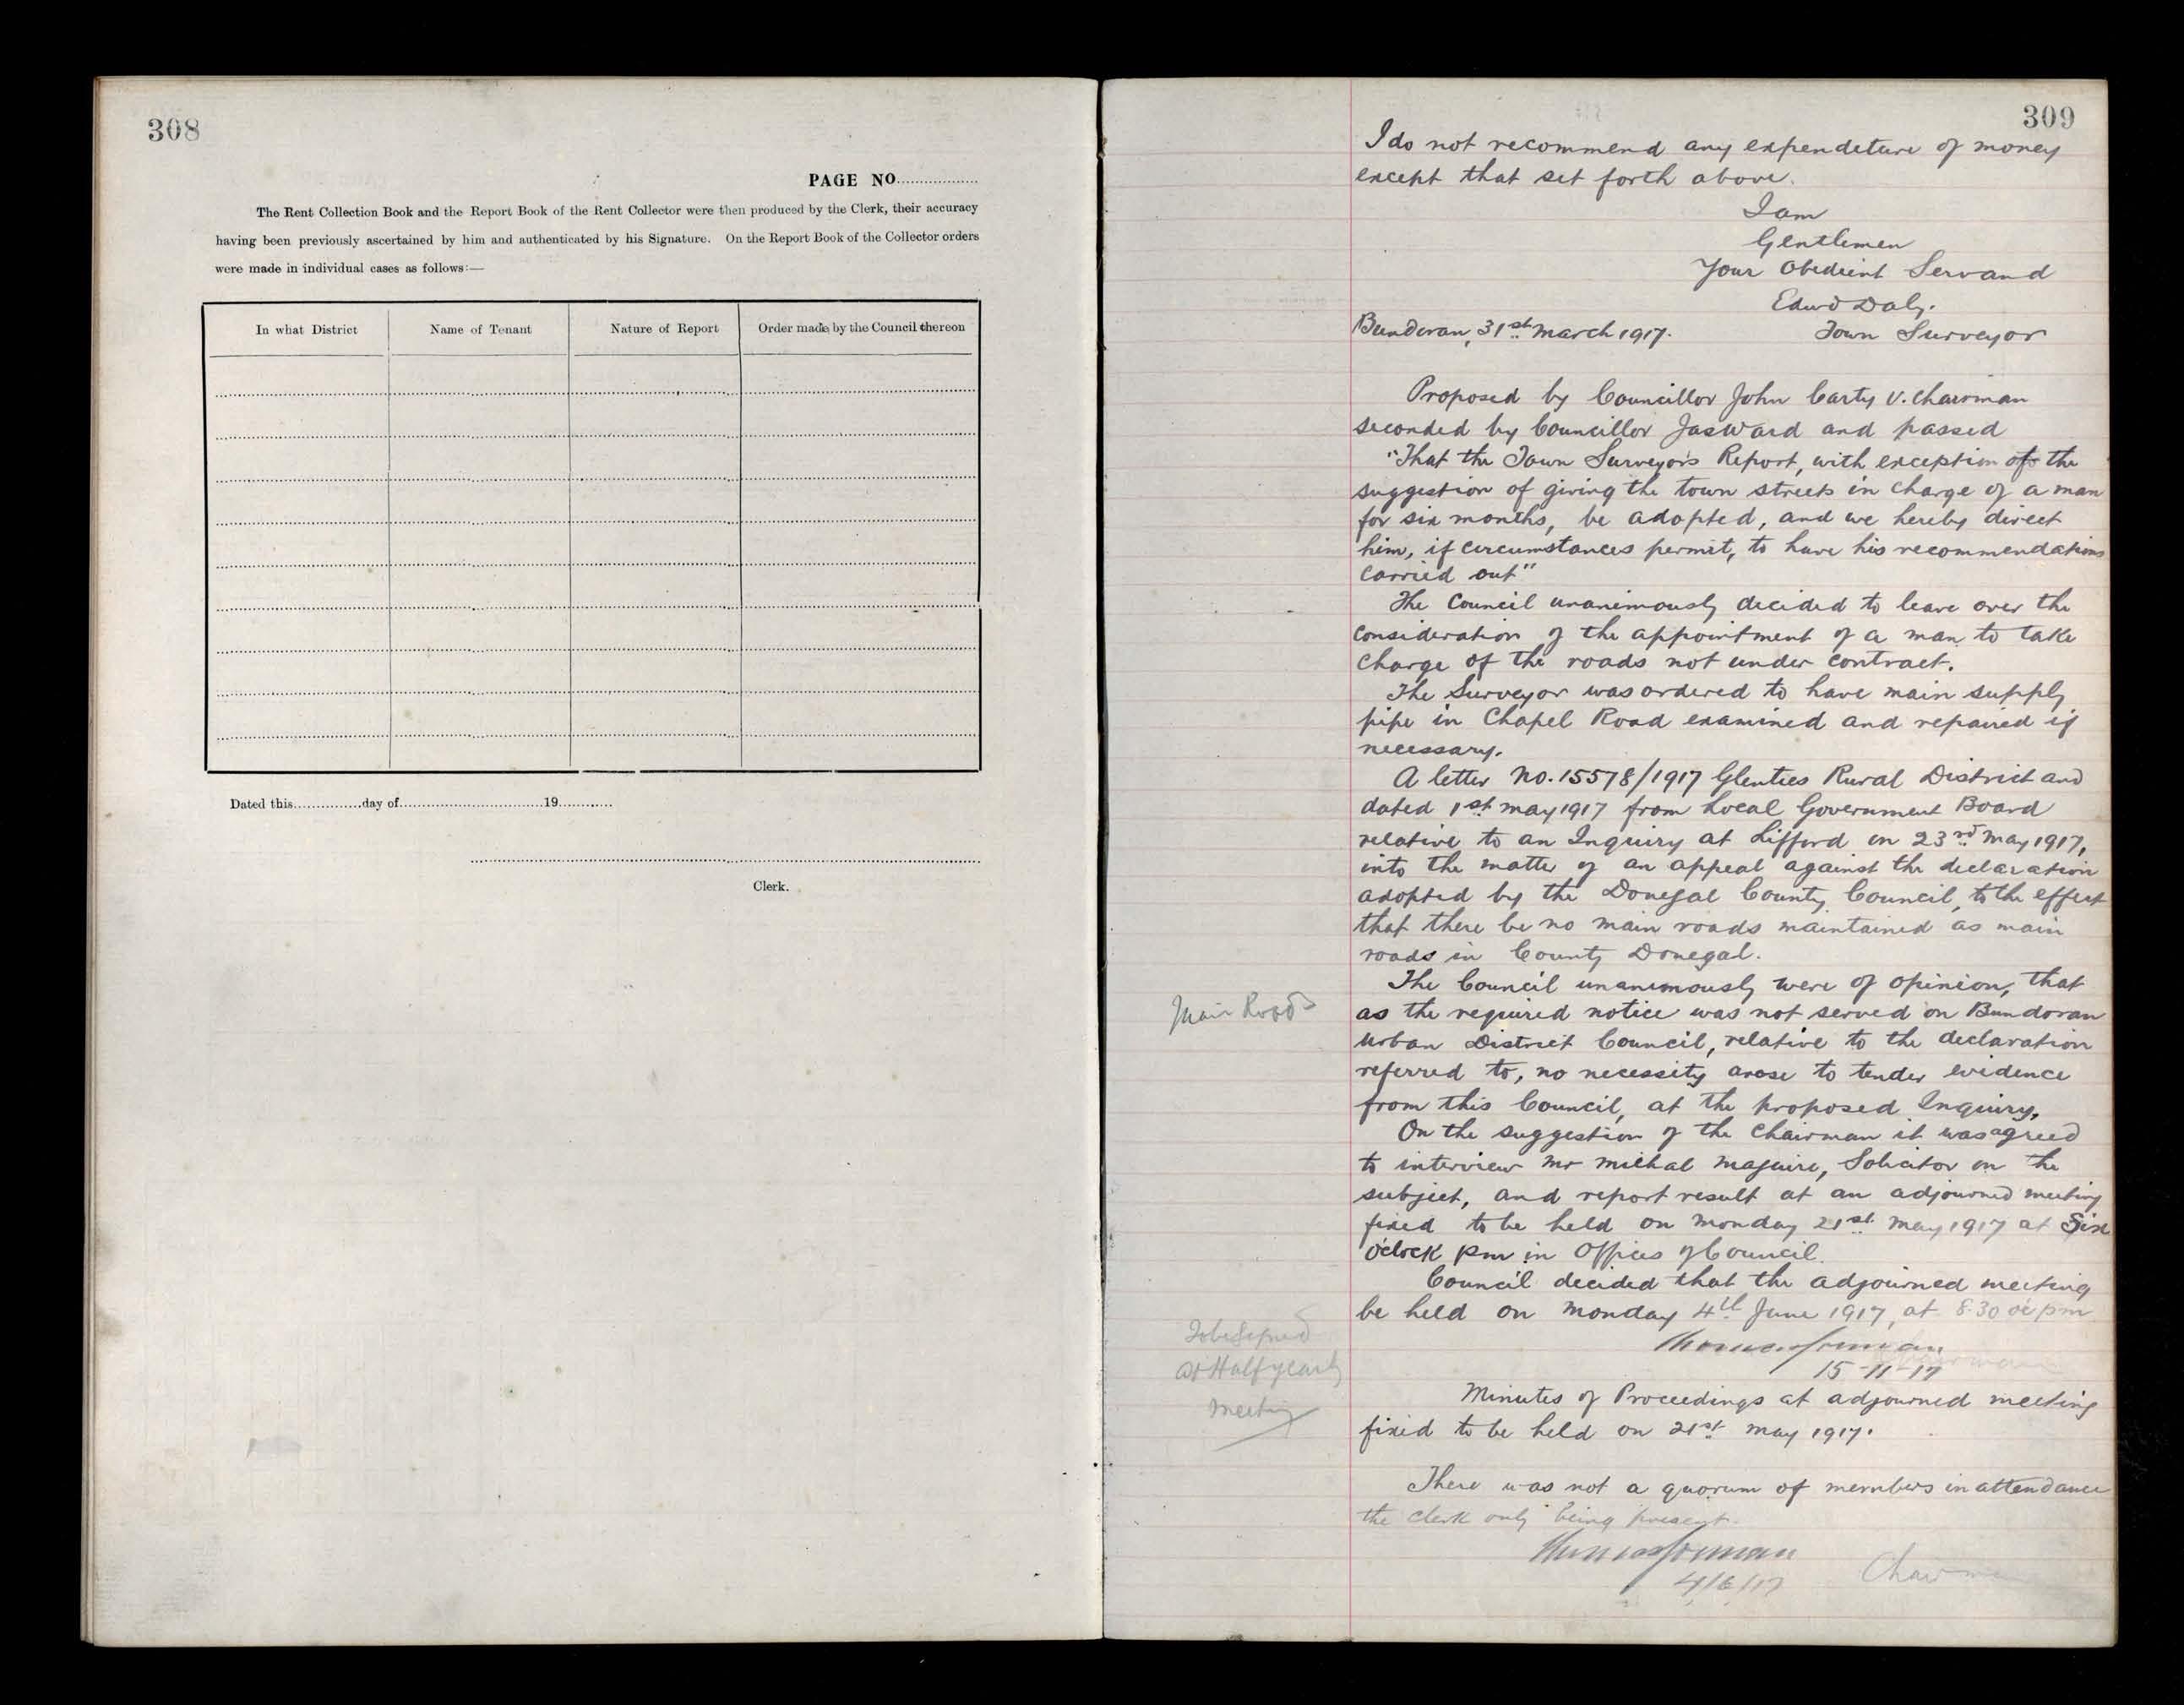 308
PAGE NO..................
The Rent Collection Book and the Report Book of the Rent Collector were then produced by the Clerk, their accuracy
having been previously ascertained by him and authenticated by his Signature. On the Report Book of the Collector orders
were made in individual cases as follows:—
In what District Name of Tenant Nature of Report Order made by the Council thereon
Dated this..............day of..............................19............
Clerk.
309
I do not recommend any expenditure of money
except that set forth above.
I am
Gentlemen
Your Obedient Servand
Edwd Daly.
Bundoran, 31st March 1917. Town Surveyor
Proposed by Councillor John Carty V. Chairman
seconded by Councillor Jas Ward and passed
"That the Town Surveyor's Report, with exception of the
suggestion of giving the town streets in charge of a man
for six months, be adopted, and we hereby direct
him, if circumstances permit, to have his recommendations
carried out"
The Council unanimously decided to leave over the
consideration of the appointment of a man to take
charge of the roads not under contract.
The Surveyor was ordered to have main supply
pipe in Chapel Road examined and repaired if
necessary.
A letter No. 15578/1917 Glenties Rural District and
dated 1st May 1917 from Local Government Board
relative to an Inquiry at Lifford on 23rd May 1917,
into the matter of an appeal against the declaration
adopted by the Donegal County Council, to the effect
that there be no main roads maintained as main
roads in County Donegal.
The Council unanimously were of opinion, that
Main Roads
as the required notice was not served on Bundoran
Urban District Council, relative to the declaration
referred to, no necessity arose to tender evidence
from this Council, at the proposed Inquiry.
On the suggestion of the Chairman it was agreed
to interview Mr Michal Maguire, Solicitor on the
subject, and report result at an adjourned meeting
fixed to be held on Monday 21st May 1917 at Six
O'clock pm in Offices of Council.
Council decided that the adjourned meeting
be held on Monday 4th June 1917, at 8.30 oc pm
To be Signed
at Half yearly
Meeting
Thomas Gorman
15-11-17
Minutes of Proceedings at adjourned meeting
fixed to be held on 21st May 1917.
There was not a quorum of members in attendance
the Clerk only being present.
Thomas Gorman
4/6/17